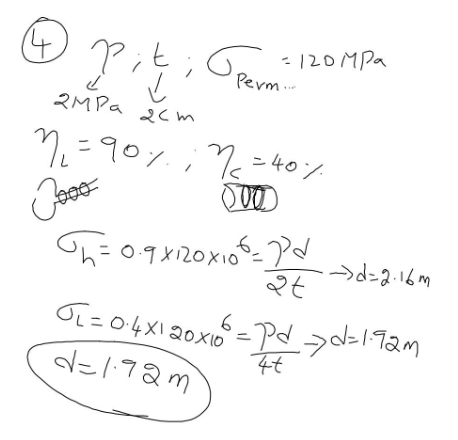 4 p ; t ; σPerm... = 120 MPa
2MPa 2cm
ηL = 90 % ; ηc = 40 %
σh = 0.9 x 120 x 10^6 = pd/2t → d = 2.16 m
σL = 0.4 x 120 x 10^6 = pd/4t → d = 1.92 m
d = 1.92 m